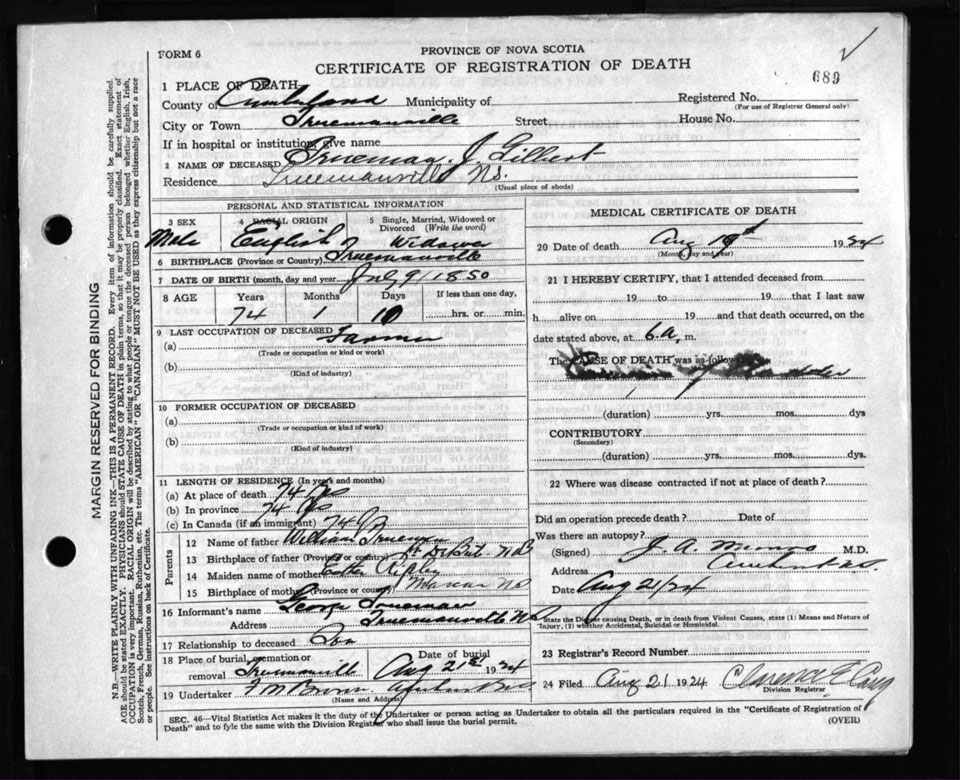 PROVINCE OF NOVA SCOTIA
FORM 6
CERTIFICATE OF REGISTRATION OF DEATH
689
1 PLACE OF DEATH
County of Cumberland Municipality of
Registered No.
(For use of Registrar General only)
City or Town Truemanville Street
House No.
If in hospital or institution, give name
2 NAME OF DECEASED Trueman J. Gilbert
Residence Truemanville NS.
(Usual place of abode)
PERSONAL AND STATISTICAL INFORMATION
3 SEX 4 RACIAL ORIGIN 5 Single, Married, Widowed or Divorced (Write the word)
Male English Widower
6 BIRTHPLACE (Province or Country) Truemanville
7 DATE OF BIRTH (month, day and year) July 9/1850
8 AGE Years Months Days If less than one day,
74 1 10 hrs. or min.
9 LAST OCCUPATION OF DECEASED Farmer
(a)
(Trade or occupation or kind or work)
(b)
(Kind of industry)
10 FORMER OCCUPATION OF DECEASED
(a)
(Trade or occupation or kind or work)
(b)
(Kind of industry)
11 LENGTH OF RESIDENCE (In years and months)
(a) At place of death 74
(b) In province 74
(c) In Canada (if an immigrant) 74
Parents
12 Name of father William Trueman
13 Birthplace of father (Province or country)
14 Maiden name of mother Ripley
15 Birthplace of mother (Province or country) Maccan NS
16 Informant's name George Trueman
Address Truemanville NS
17 Relationship to deceased Son
18 Place of burial, cremation or removal Truemanville Date of burial Aug 21st 1924
19 Undertaker F M Brown
(Name and Address)
MEDICAL CERTIFICATE OF DEATH
20 Date of death Aug 19th 1924
(Month, day and year)
21 I HEREBY CERTIFY, that I attended deceased from
19 to 19 that I last saw
h alive on 19 and that death occurred, on
date stated above, at 6 a, m.
The CAUSE OF DEATH was as follows:
(duration) yrs. mos. dys
CONTRIBUTORY
(Secondary)
(duration) yrs. mos. dys.
22 Where was disease contracted if not at place of death?
Did an operation precede death? Date of
Was there an autopsy?
(Signed) J. A. M.D.
Address Amherst NS.
Date Aug 21/24
State the Disease causing Death, or in death from Violent Causes, state (1) Means and Nature of Injury, (2) whether Accidental, Suicidal or Homicidal.
23 Registrar's Record Number
24 Filed Aug 21 1924 Clarence E
Division Registrar
SEC. 46—Vital Statistics Act makes it the duty of the Undertaker or person acting as Undertaker to obtain all the particulars required in the "Certificate of Registration of
Death" and to fyle the same with the Division Registrar who shall issue the burial permit. (OVER)
MARGIN RESERVED FOR BINDING
N.B.—WRITE PLAINLY WITH UNFADING INK—THIS IS A PERMANENT RECORD. Every item of information should be carefully supplied.
AGE should be stated EXACTLY. PHYSICIANS should STATE CAUSE OF DEATH in plain terms, so that it may be properly classified. Exact statement of
OCCUPATION is very important. RACIAL ORIGIN will be described by stating to what people or tongue the deceased person belonged whether English, Irish,
Scotch, French, German, Russian, Ruthenian, etc. The terms "AMERICAN" or "CANADIAN" MUST NOT BE USED as they express citizenship but not a race
or people. See instructions on back of Certificate.